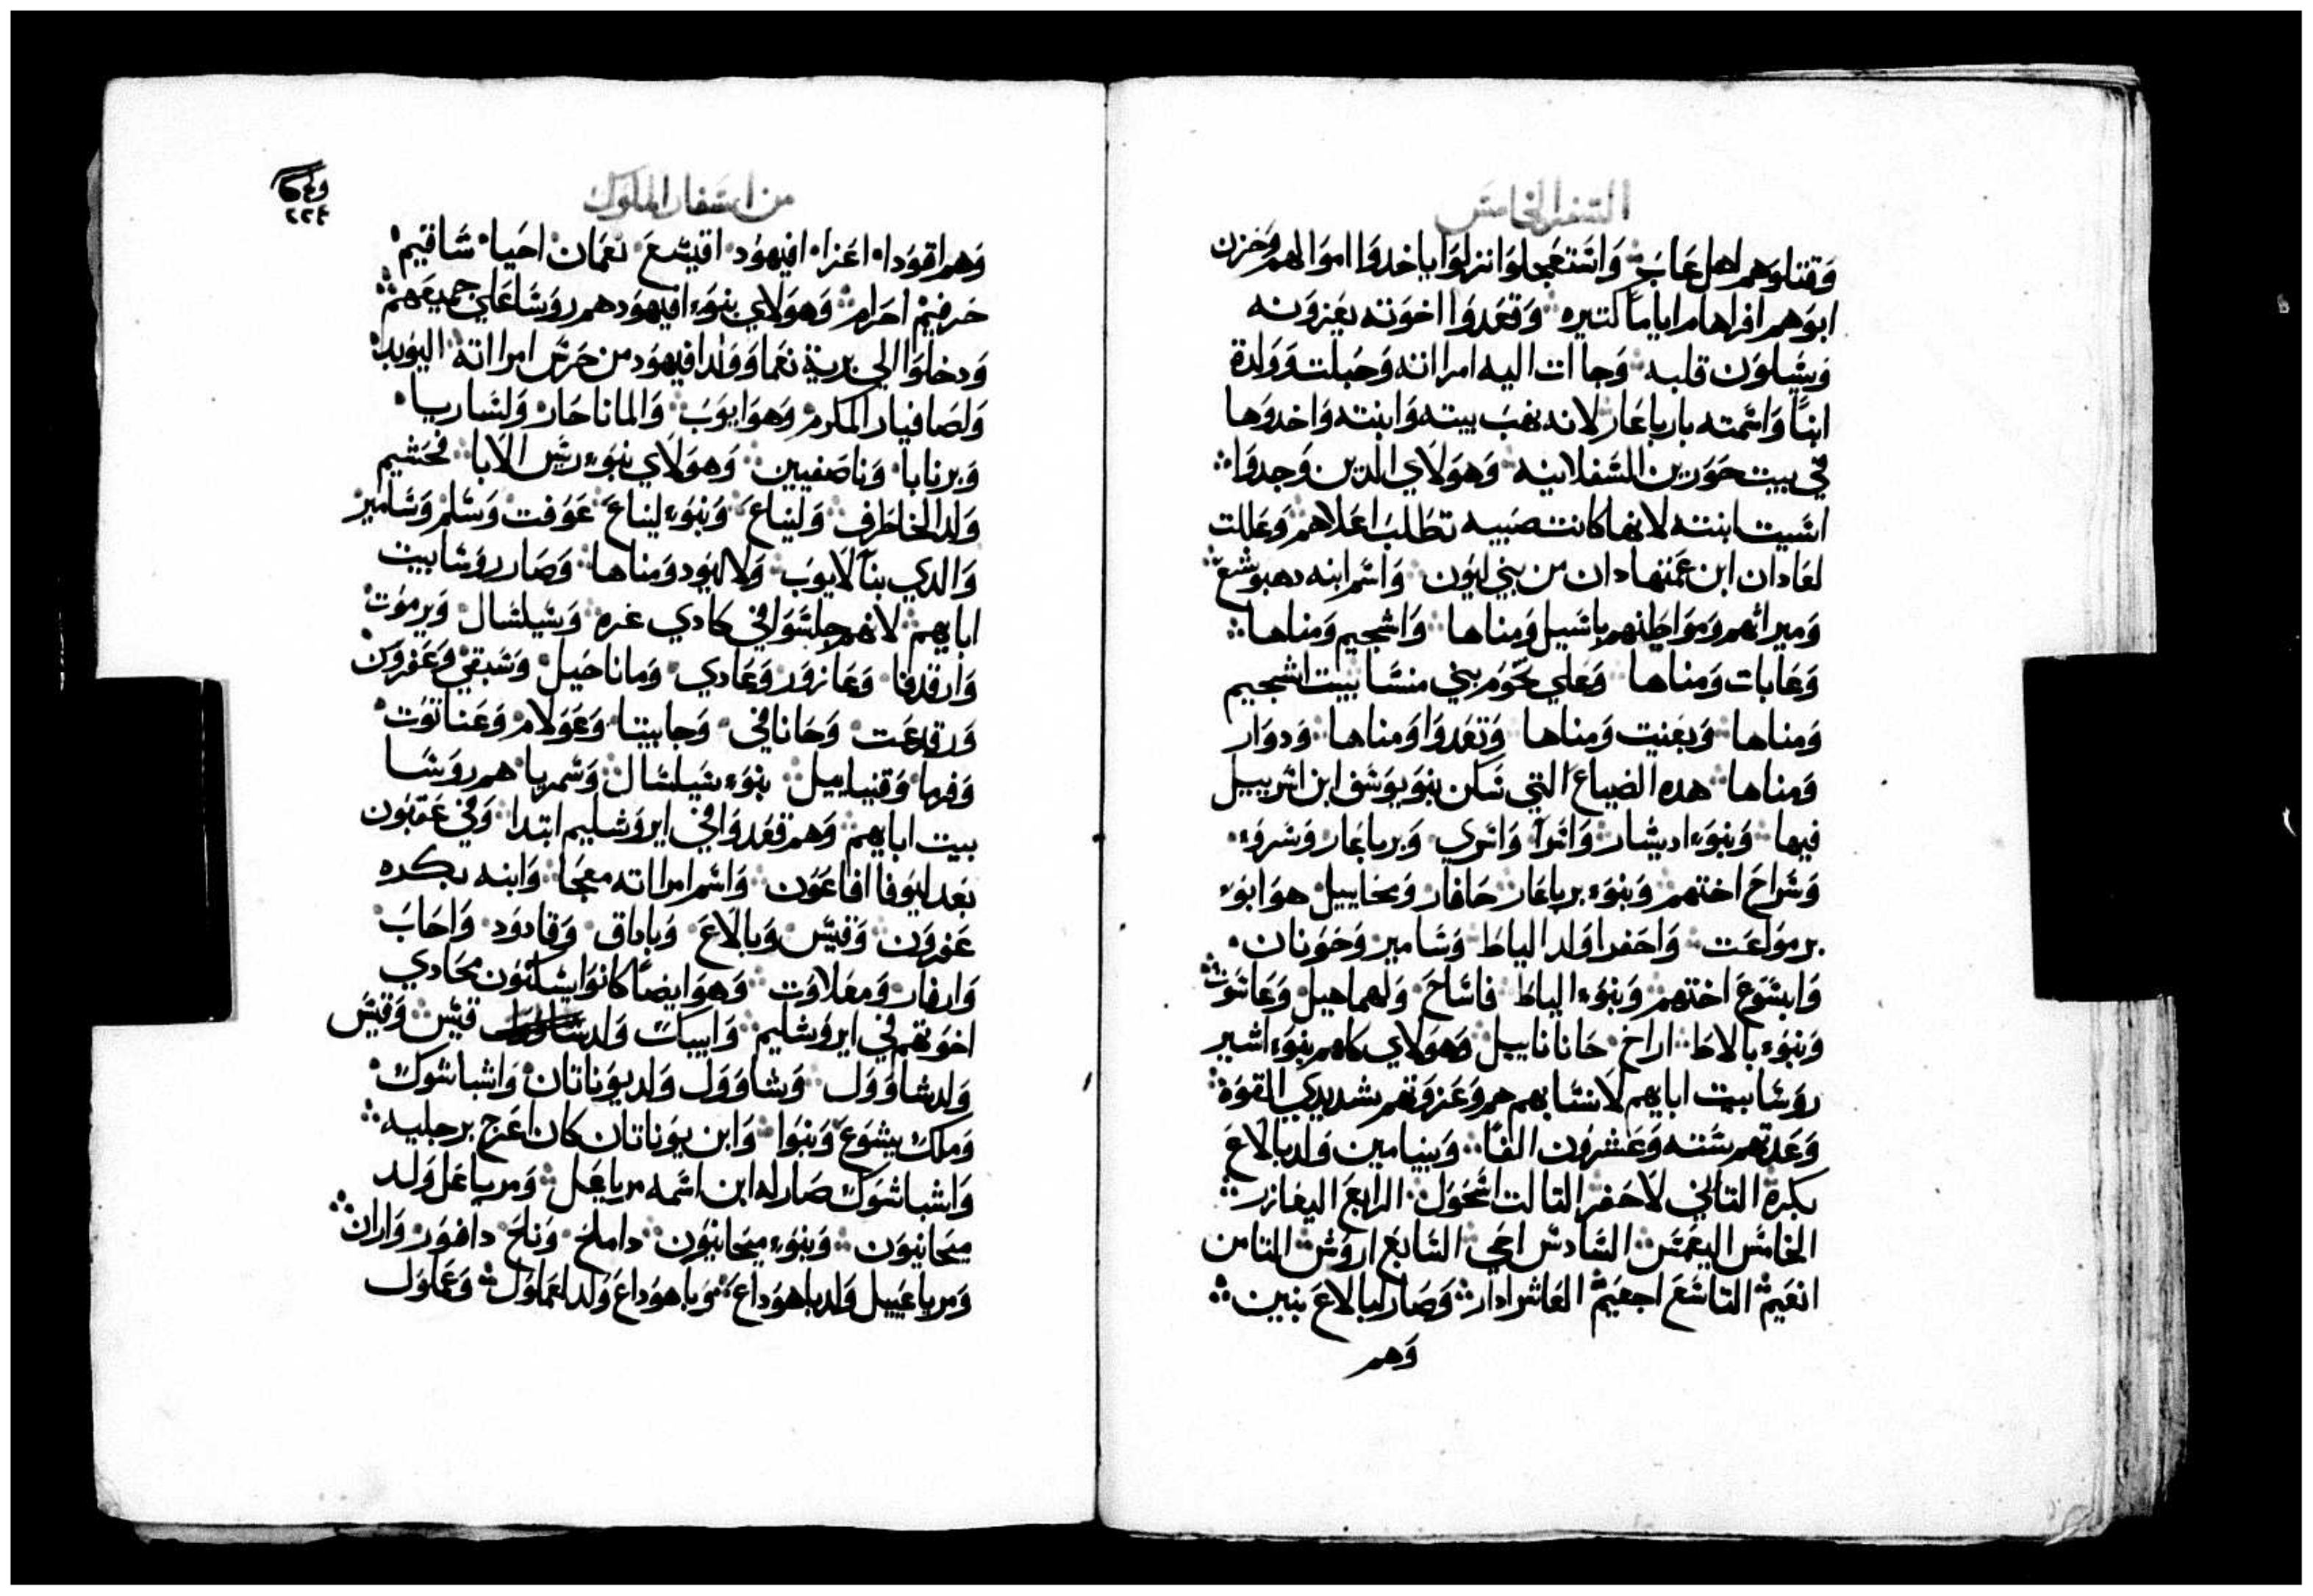 السفر الخامس
وقتلوهم اهل عاب واستعجلوا نزلوا ياخدوا اموالهم وحزن
ابوهم افراهام اياماً كتيره وقعدوا اخوته يعزونه
ويسلون قلبه وجاات اليه امراته وحبلت وولدة
ابناً واسمته بارياعار لانه نهب بيته وابنته واخدوها
في بيت حورين السفلانيه وهولاي الدين وجدوا
اسيت ابنته لانها كانت صبيه تطلب اعلاهم وعللت
لعادان ابن عمتها دان من بني ليون واسم ابنه دهبوشع
وميراثهم ومواطنهم باسيل ومناها واشجيم ومناها
وغابات ومناها وعلي نحوم بني منسا بيت اشجيم
ومناها وبعنيت ومناها وتعدوا ومناها ودوار
ومناها هده الضياع التي سكن بنو يوسف ابن اسريييل
فيها وبنوء اديشار واترا واتري وبرياعار وسروء
وسراح اختهم وبنوء برياعار حافار ومخاييل هو ابوء
برمولعت واحفرا ولد الياط وسامير وحونان
وابشوع اختهم وبنوء الياط فاساح ولهماهيل وعاشوت
وبنوء بالاط اراح حانانا ييل وهولاي كلهم بنوء اشير
روسا بيت ابايهم لانسابهم هم وعزوتهم شديدي القوة
وعدتهم ستته وعشرون الفا وبنيامين ولد بالاع
بكرة التاني لاحفر التالت اشحول الرابع اليغازر
الخامس اليعمس السادس احي السابع اروش التامن
انعيم التاسع اجعيم العاشر ادار وصار لبالاع بنين
وهم
من اسفار الملوك
٢٢٤
وهم اقودا اعزا افيهود اقيشع نعمان احيا شافيم
حرفيم احرام وهولاي بنوء افيهود هم روسا علي جميعهم
ودخلوا الي برية نعما وولد افيهود من حرس امراته اليوبد
ولصافيار المكرم وهو ايوب والماناحار ولساريا
وبرنابا وناصفيين وهولاي بنوء ريس الابا فحشيم
ولد الخاطرف ولبناع وبنوء ليناع عوفت وسلم وسامير
والدي بنا لايوب ولالهود ومناها وصار روسا بيت
ابايهم لانهم جلسوا في كادي غره وسيلسال ويرموت
وارقدفا وعازور وعادي وماناحيل وسبقي وعفرون
ورقدعت وحانافي وجابيتا وعولام وعناتوت
وفرها وقنياييل بنوء سيلسال وشمريا هم روسا
بيت ابايهم وهم قعدوا في ايروشليم ابتدا وفي عقبون
بعد ايوفا افاعون واسم امراته معجا وابنه بكره
عفرون وقيس وبالاع وباداق وقادود واحاب
وارفار ومغلاوت وهو ايضاً كانوا يسكنون محادي
اخوتهم في ايروشليم وابيات ولد قيس وقيس
ولد شاوول وشاوول ولد يوناتان واشباشوك
وملك يشوع وبنوا وابن يوناتان كان اعرج برجليه
واشباشوك صار له ابن اسمه مرياعل ومرياعل ولد
ميحانيون وبنوء ميحانيون داملخ وناخ دافور واران
ومرياعييل ولد ياهوداع وياهوداع ولد لعماول وعملول